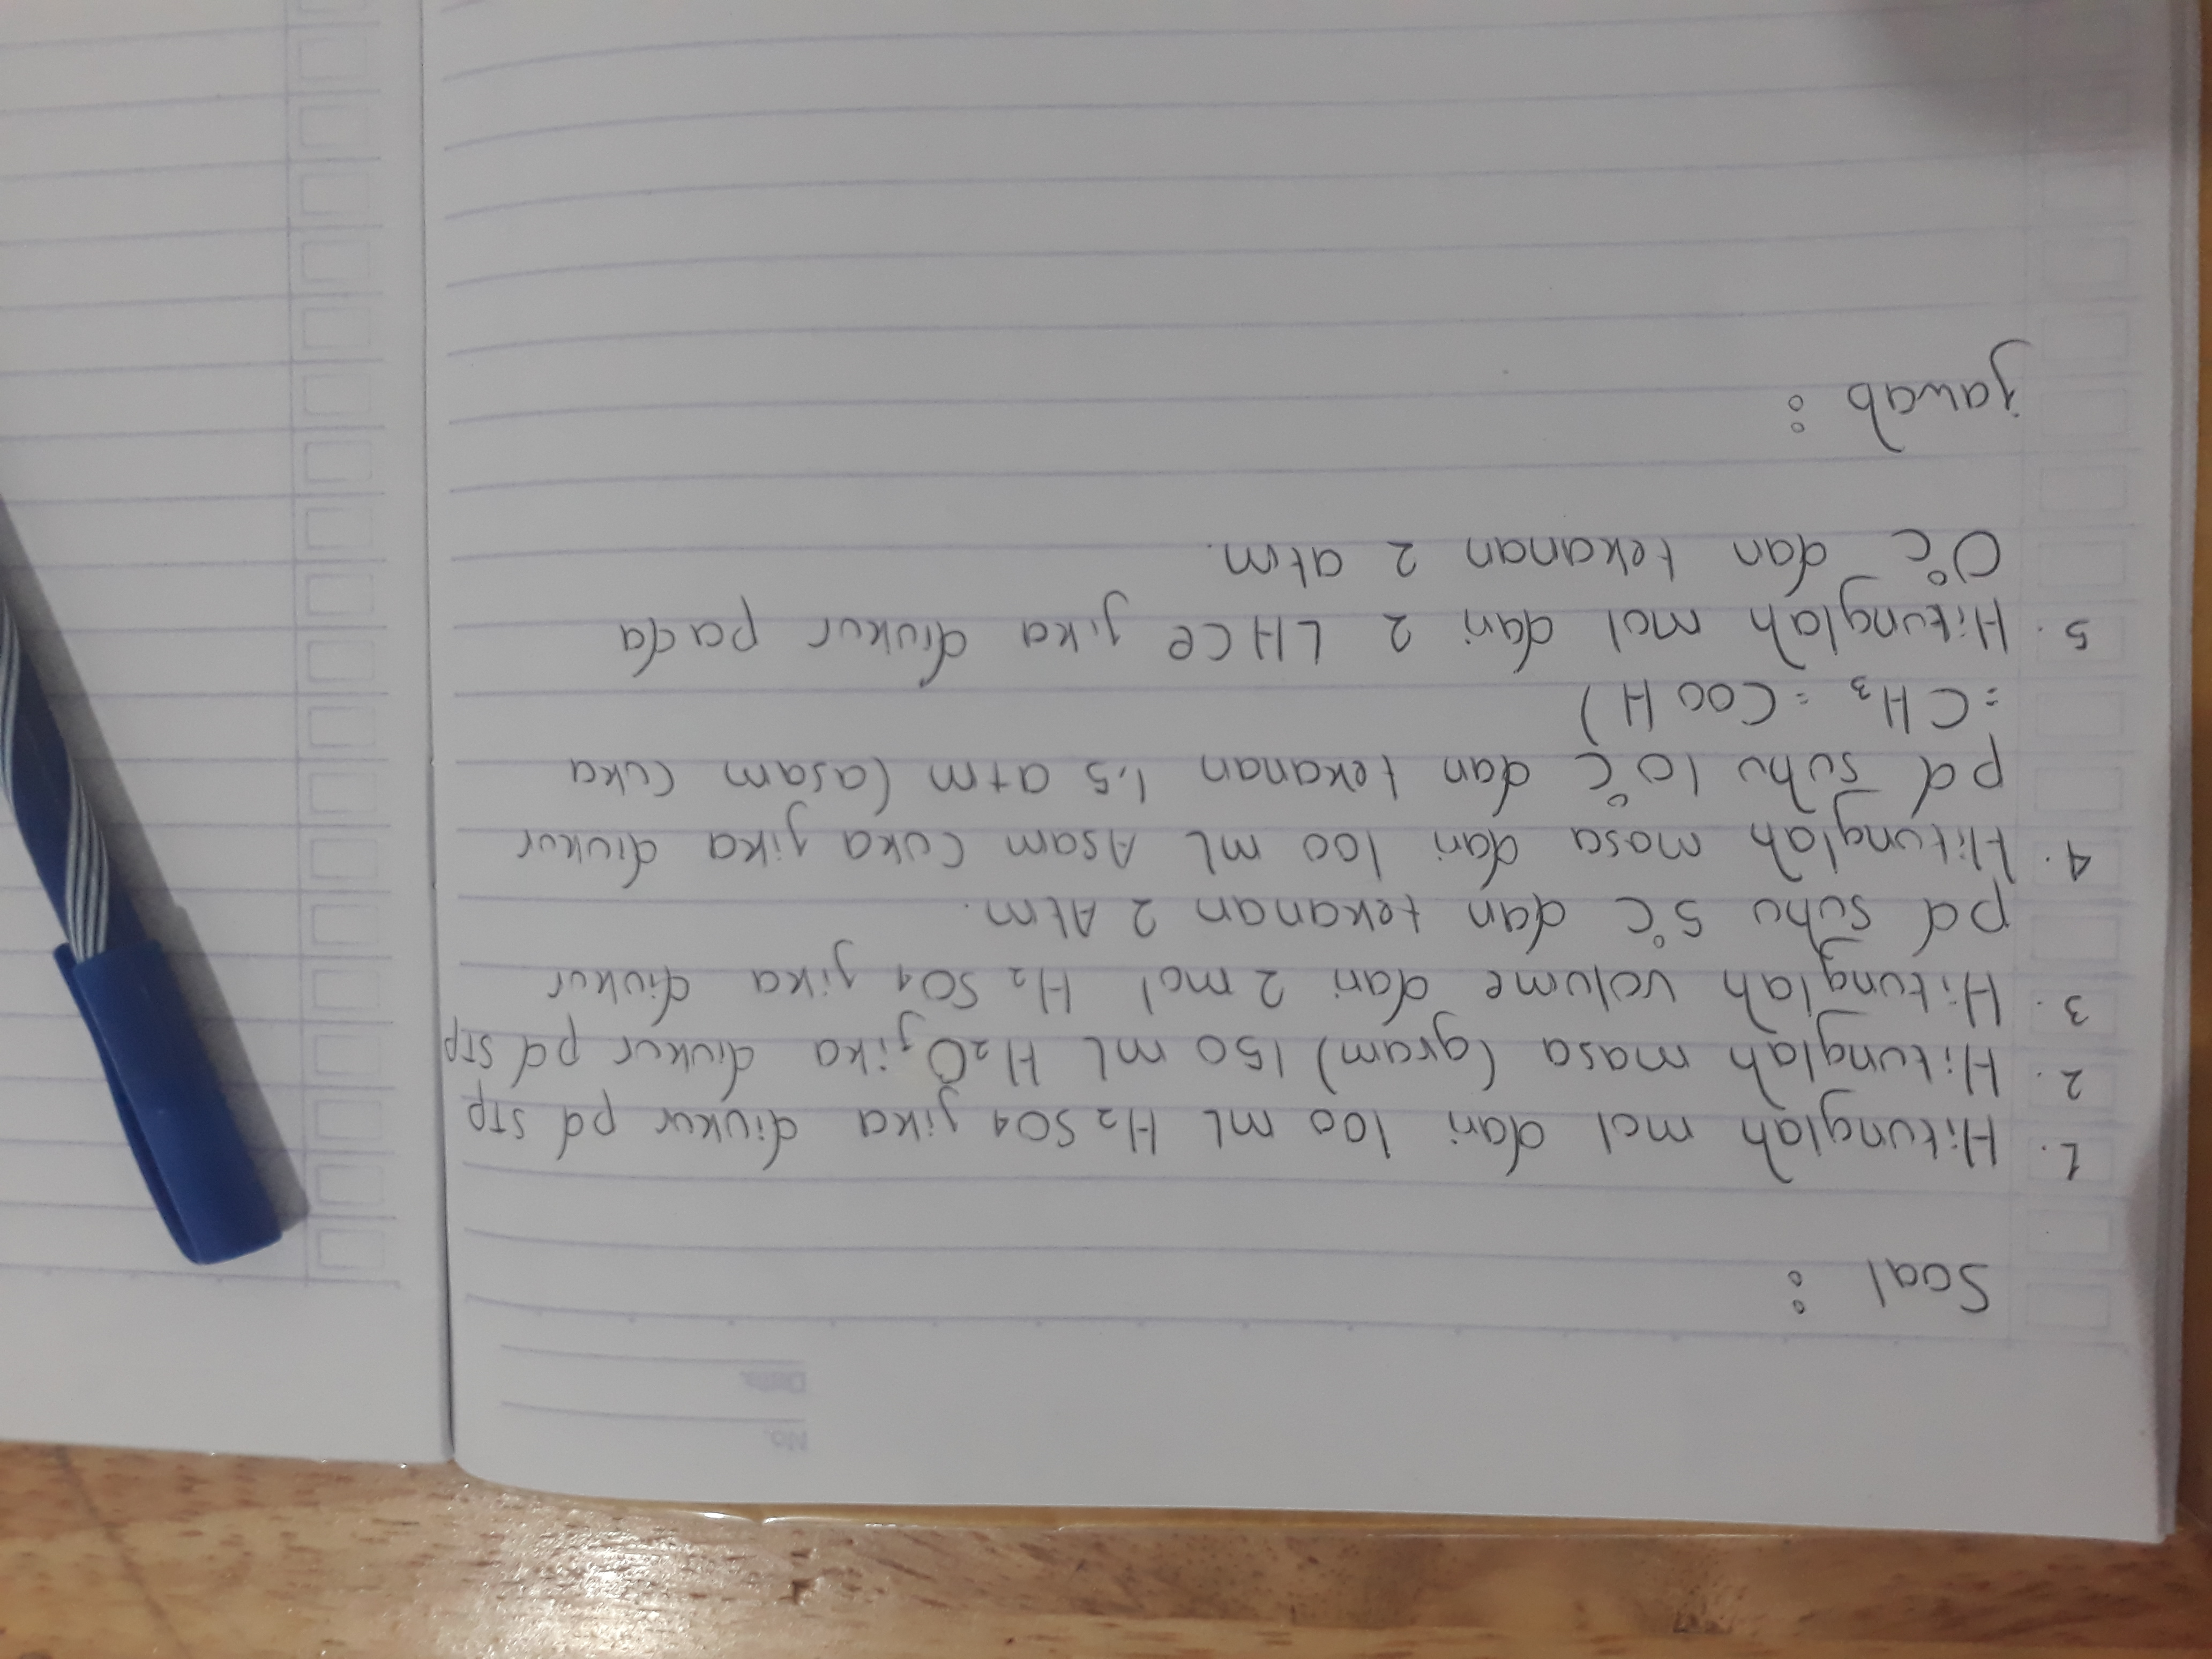 No.
Date.
Soal :
1. Hitunglah mol dari 100 mL H₂SO₄ jika diukur pd STP
2. Hitunglah masa (gram) 150 mL H₂O jika diukur pd STP
3. Hitunglah volume dari 2 mol H₂SO₄ jika diukur
pd suhu 5°C dan tekanan 2 Atm.
4. Hitunglah masa dari 100 mL Asam Cuka jika diukur
pd suhu 10°C dan tekanan 1,5 atm (asam cuka
= CH₃ = COOH)
5. Hitunglah mol dari 2 L HCl jika diukur pada
0°C dan tekanan 2 atm.
jawab :